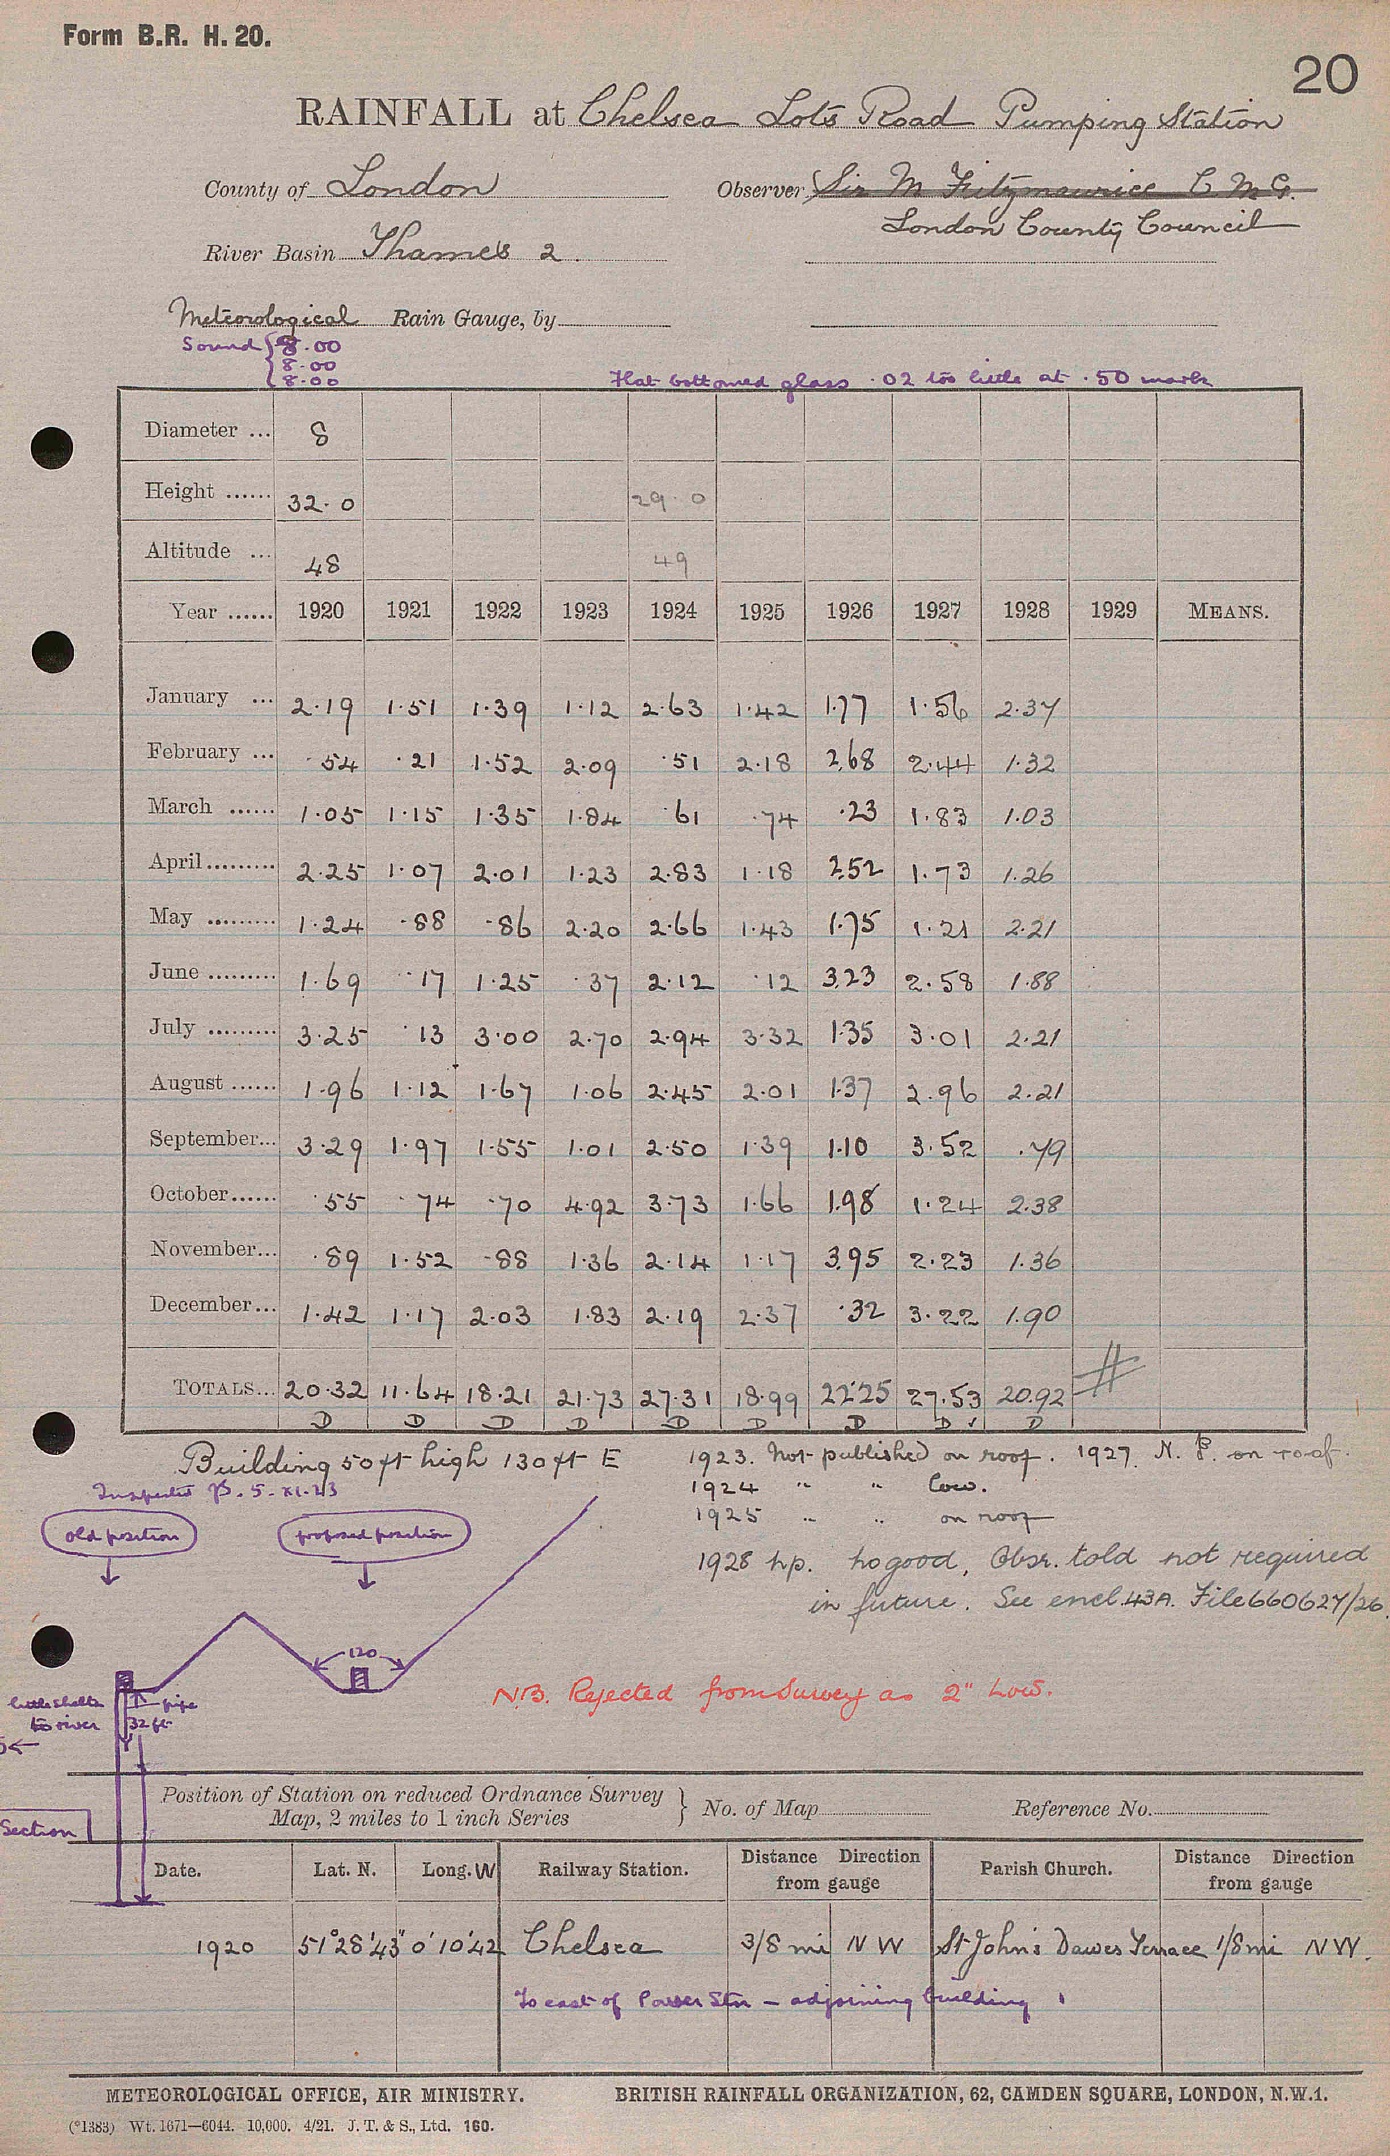 Form B.R. H. 20.
20
RAINFALL at Chelsea Lots Road Pumping Station
County of London Observer Sir M Fitzmaurice C M G.
London County Council
River Basin Thames 2.
Meteorological Rain Gauge, by
Sound { 8.00
8.00
8.00
Flat bottomed glass .02 too little at .50 mark
Diameter ... 8
Height ...... 32.0 29.0
Altitude ... 48 49
Year ...... 1920 1921 1922 1923 1924 1925 1926 1927 1928 1929 MEANS.
January ... 2.19 1.51 1.39 1.12 2.63 1.42 1.77 1.56 2.37
February ... .54 .21 1.52 2.09 .51 2.18 2.68 2.44 1.32
March ...... 1.05 1.15 1.35 1.84 .61 .74 .23 1.83 1.03
April ......... 2.25 1.07 2.01 1.23 2.83 1.18 2.52 1.73 1.26
May ......... 1.24 .88 .86 2.20 2.66 1.43 1.75 1.21 2.21
June ......... 1.69 .17 1.25 .37 2.12 .12 3.23 2.58 1.88
July ......... 3.25 .13 3.00 2.70 2.94 3.32 1.35 3.01 2.21
August ...... 1.96 1.12 1.67 1.06 2.45 2.01 1.37 2.96 2.21
September... 3.29 1.97 1.55 1.01 2.50 1.39 1.10 3.52 .79
October...... .55 .74 .70 4.92 3.73 1.66 1.98 1.24 2.38
November... .89 1.52 .88 1.36 2.14 1.17 3.95 2.23 1.36
December... 1.42 1.17 2.03 1.83 2.19 2.37 .32 3.22 1.90
TOTALS... 20.32 11.64 18.21 21.73 27.31 18.99 22.25 27.53 20.92 #
D D D D D D D D ✓ D
Building 50 ft high 130 ft E
1923. Not published on roof. 1927. N. P. on roof.
Inspected 5.XI.23
1924 " " low.
1925 " " on roof
old position
proposed position
1928 n.p. no good, Obsr. told not required
in future. See encl. 43A. File 660627/26.
120
N.B. Rejected from Survey as 2" Low.
little shelter
to river
pipe
32 ft
Section
Position of Station on reduced Ordnance Survey
Map, 2 miles to 1 inch Series } No. of Map Reference No.
Date. Lat. N. Long. W Railway Station. Distance Direction from gauge Parish Church. Distance Direction from gauge
1920 51°28'43" 0°10'42 Chelsea 3/8 mi N W St John's Dawes Terrace 1/8 mi N W.
To east of Power Stn – adjoining building
METEOROLOGICAL OFFICE, AIR MINISTRY. BRITISH RAINFALL ORGANIZATION, 62, CAMDEN SQUARE, LONDON, N.W.1.
(*1383) Wt. 1671—6044. 10,000. 4/21. J. T. & S., Ltd. 160.